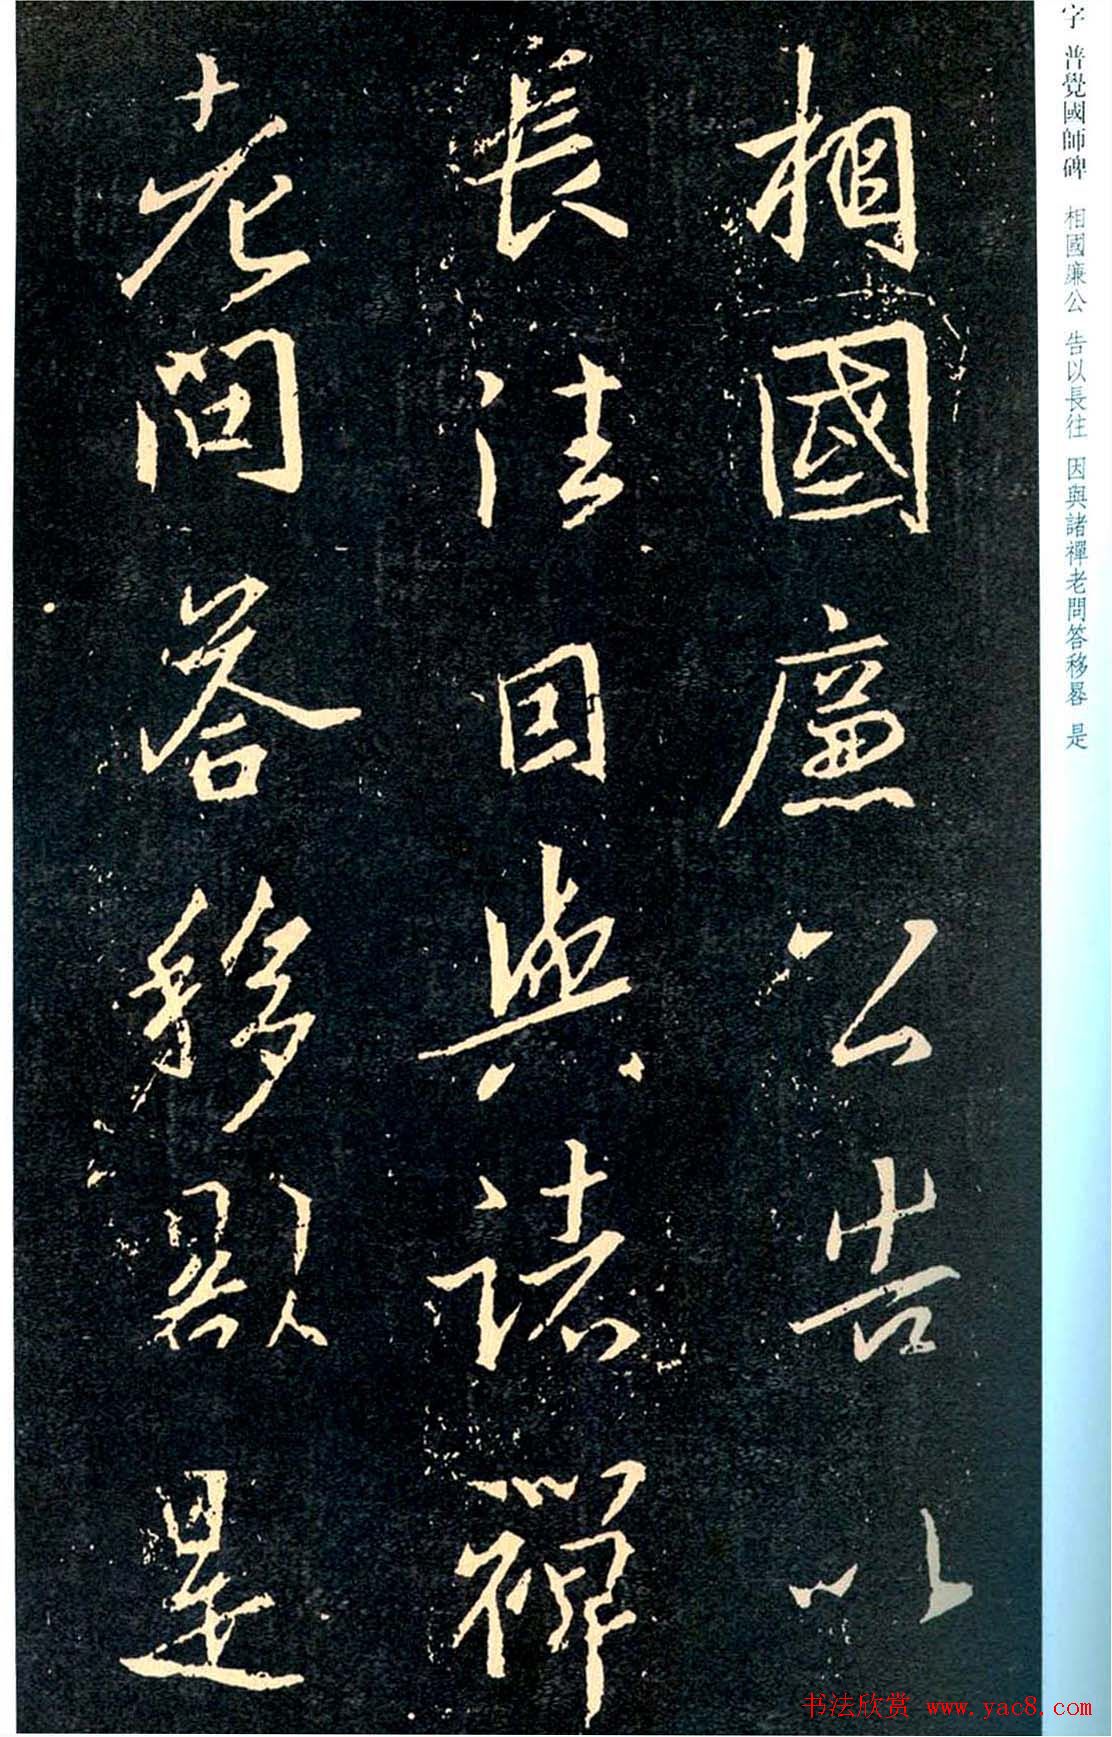 相國廉公告以
長往因與諸禪
老問答移晷是
字 普覺國師碑 相國廉公 告以長往 因與諸禪老問答移晷 是
书法欣赏 www.yac8.com